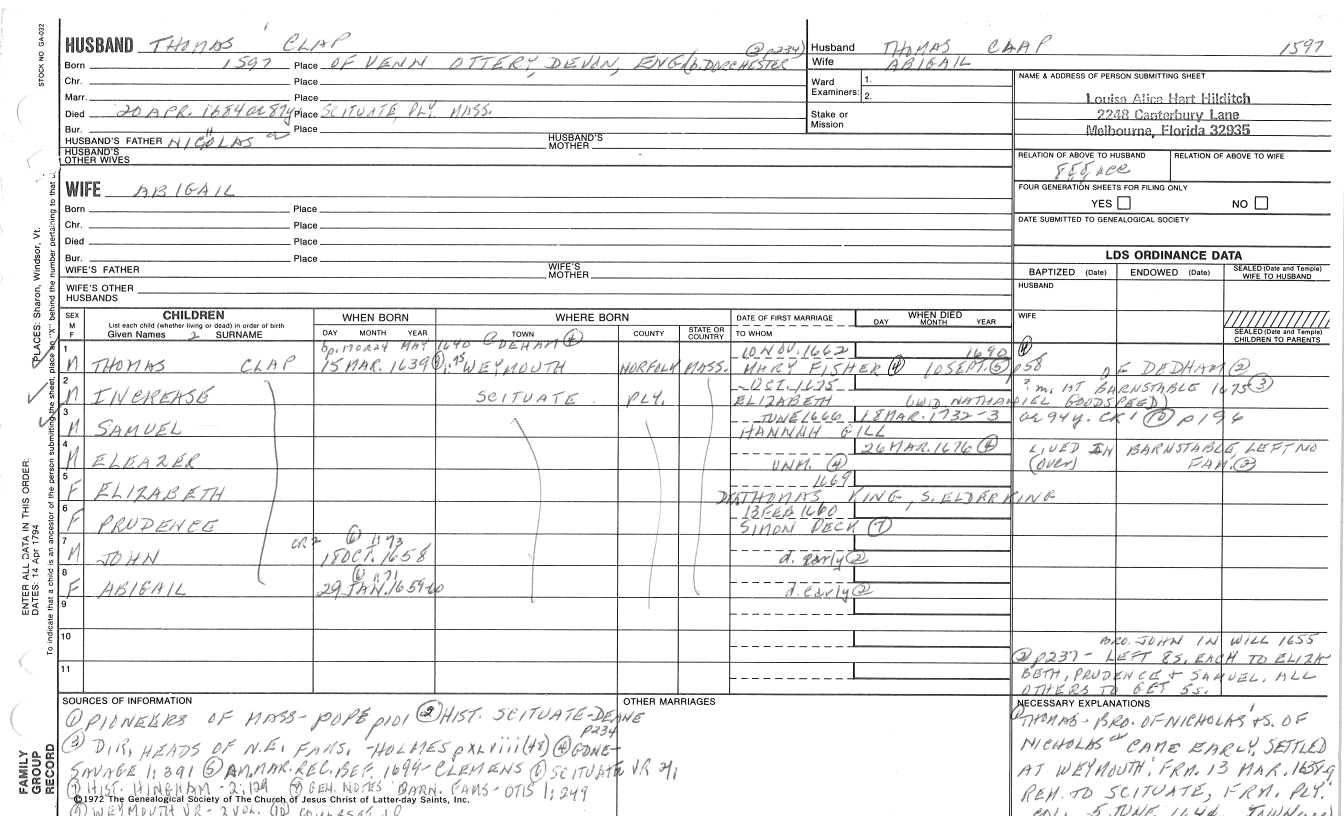 STOCK NO. GA-022
HUSBAND THOMAS CLAP
Born 1597 Place OF VENN OTTERY, DEVON, ENG (b. DORCHESTER ② p234)
Chr. Place
Marr. Place
Died 20 APR. 1684 or 87y Place SCITUATE, PLY. MASS.
Bur. Place
HUSBAND'S FATHER NICHOLAS HUSBAND'S MOTHER
HUSBAND'S OTHER WIVES
WIFE ABIGAIL
Born Place
Chr. Place
Died Place
Bur. Place
WIFE'S FATHER WIFE'S MOTHER
WIFE'S OTHER HUSBANDS
Husband THOMAS CLAP 1597
Wife ABIGAIL
Ward 1.
Examiners: 2.
Stake or Mission
NAME & ADDRESS OF PERSON SUBMITTING SHEET
Louisa Alice Hart Hilditch
2248 Canterbury Lane
Melbourne, Florida 32935
RELATION OF ABOVE TO HUSBAND RELATION OF ABOVE TO WIFE
FOUR GENERATION SHEETS FOR FILING ONLY
YES NO
DATE SUBMITTED TO GENEALOGICAL SOCIETY
LDS ORDINANCE DATA
BAPTIZED (Date) ENDOWED (Date) SEALED (Date and Temple) WIFE TO HUSBAND
HUSBAND
WIFE
SEALED (Date and Temple) CHILDREN TO PARENTS
SEX M F
CHILDREN
List each child (whether living or dead) in order of birth
Given Names SURNAME
WHEN BORN
DAY MONTH YEAR
WHERE BORN
TOWN COUNTY STATE OR COUNTRY
DATE OF FIRST MARRIAGE
TO WHOM
WHEN DIED
DAY MONTH YEAR
bp. 17 OR 24 MAY 1640 DEHAM ④ 10 NOV. 1662 1690
1 M THOMAS CLAP 15 MAR. 1639 WEYMOUTH NORFOLK MASS. MARY FISHER ④ 10 SEPT. ⑤ p58 OF DEDHAM ②
OCT. 1675 ? m. AT BARNSTABLE 1675 ③
2 M INCREASE SCITUATE PLY. ELIZABETH (WID. NATHANIEL GOODSPEED)
JUNE 1666 18 MAR. 1732-3 or 94y. CK! ⑩ p196
3 M SAMUEL HANNAH GILL
26 MAR. 1676 ④ LIVED IN BARNSTABLE, LEFT NO FAM. ②
4 M ELEAZER UNM. ④ (OVER)
1669
5 F ELIZABETH THOMAS KING, S. ELDER KING
13 FEB 1660
6 F PRUDENCE SIMON PECK ⑦
7 M JOHN ⑥ 1:73 18 OCT. 1658 d. early ②
8 F ABIGAIL ⑥ 1:71 29 JAN. 1659-60 d. early ②
9
10
11
BRO. JOHN IN WILL 1655
② p237 - LEFT 8s. EACH TO ELIZA-
BETH, PRUDENCE & SAMUEL. ALL
OTHERS TO GET 5s.
SOURCES OF INFORMATION
① PIONEERS OF MASS - POPE p101 ② HIST. SCITUATE - DEANE p234
③ DIR. HEADS OF N.E. FAMS. - HOLMES p XLViii (48) ④ GDNE -
SAVAGE 1:391 ⑤ AM. MAR. REC. BEF. 1699 - CLEMENS ⑥ SCITUATE VR
⑦ HIST. HINGHAM - 2:129 ⑧ GEN. NOTES BARN. FAMS - OTIS 1:249
©1972 The Genealogical Society of The Church of Jesus Christ of Latter-day Saints, Inc.
⑨ WEYMOUTH VR - 2 VOL. ⑩
OTHER MARRIAGES
NECESSARY EXPLANATIONS
THOMAS - BRO. OF NICHOLAS & S. OF
NICHOLAS CAME EARLY, SETTLED
AT WEYMOUTH. FRM. 13 MAR. 1638-9
REM. TO SCITUATE, FRM. PLY.
5 JUNE 1644.
PLACES: Sharon, Windsor, Vt.
ENTER ALL DATA IN THIS ORDER:
DATES: 14 Apr 1794
To indicate that a child is an ancestor of the person submitting the sheet, place an "X" behind the number pertaining to that
FAMILY GROUP RECORD